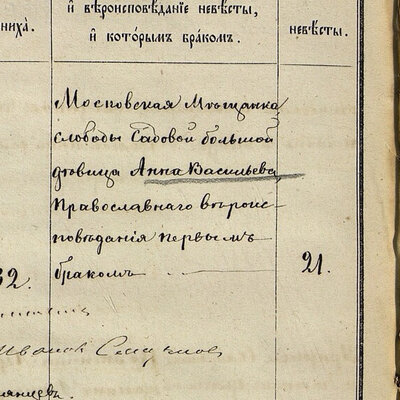 и҆ вѣроисповѣданіе невѣсты,
и҆ кото́рымъ бра́комъ.
ниха̀.
невѣ́сты.
Московская Мѣщанка
слободы Садовой большой
дѣвица Анна Васильева,
Православнаго вѣроис-
повѣданія первымъ
бракомъ
32.
21.
Иванов